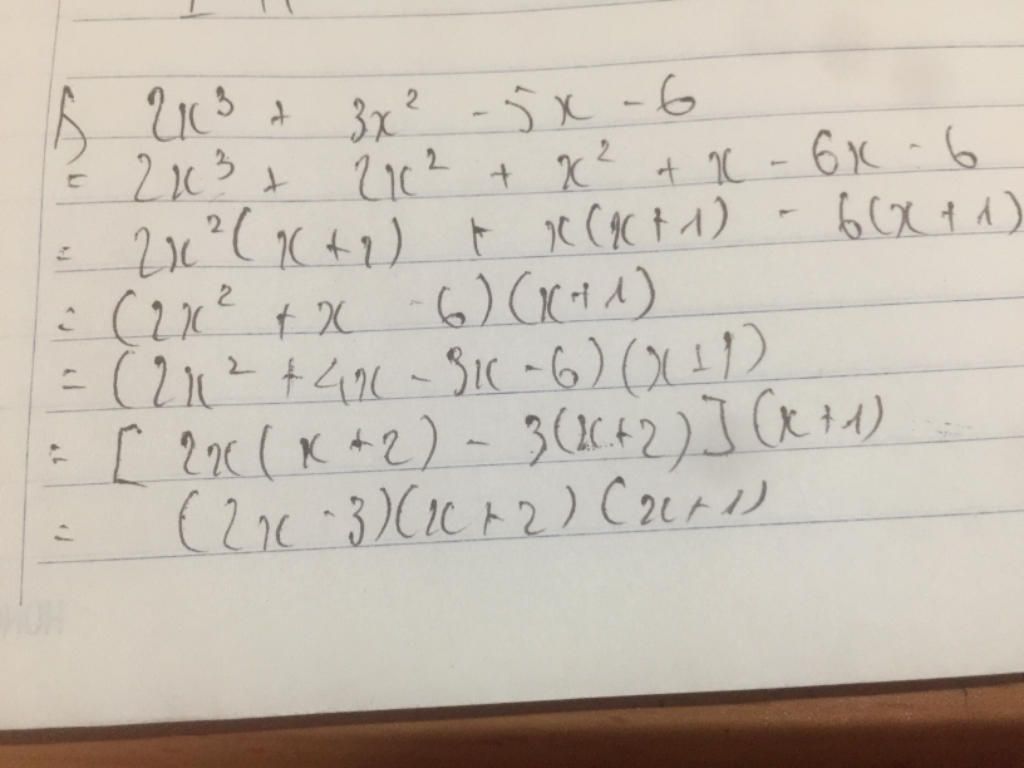 2x³ + 3x² - 5x - 6
= 2x³ + 2x² + x² + x - 6x - 6
= 2x²(x+1) + x(x+1) - 6(x+1)
= (2x² + x - 6)(x+1)
= (2x² + 4x - 3x - 6)(x+1)
= [2x(x+2) - 3(x+2)](x+1)
= (2x - 3)(x+2)(x+1)